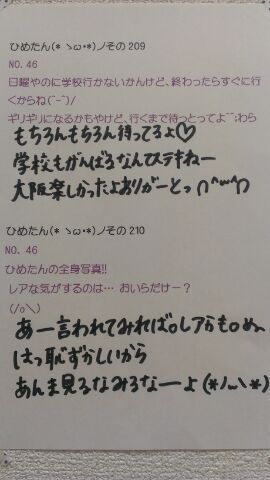 ひめたん(* ゝω･*)ノその 209
NO. 46
日曜やのに学校行かないかんけど、終わったらすぐに行
くからね(˘ｰ˘)/
ギリギリになるかもやけど、行くまで待っとってよ^^;わら
もちろんもちろん待ってるよ♡
学校もがんばるなんてステキねー
大阪楽しかったよおりがーとっ∩^ω^∩
ひめたん(* ゝω･*)ノその 210
NO. 46
ひめたんの全身写真!!
レアな気がするのは… おいらだけー？
(/o＼)
あー言われてみれば。レアかも。め、
はっ恥ずかしいから
あんま見るなみるなーよ(*ﾉ_ヽ*)